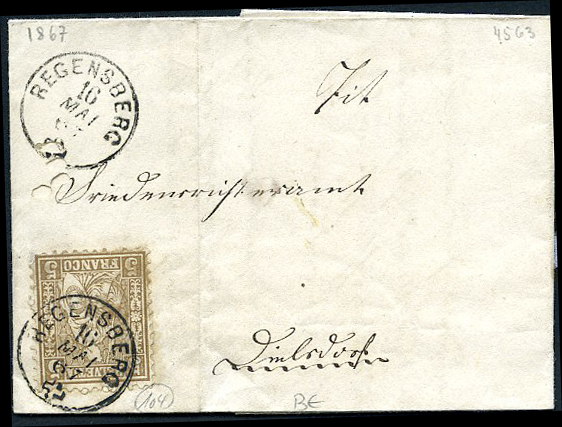 1867
4563
REGENSBERG
16
MAI
67
Tit
Friedensrichteramt
5 FRANCO 5
REGENSBERG
16
MAI
67
Dielsdorf
104
BE